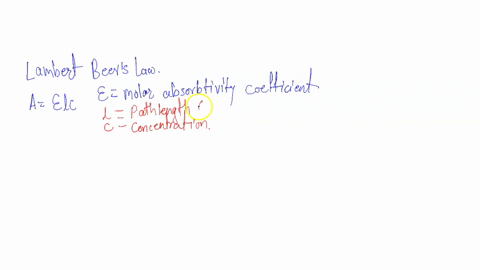 Lambert Beer's Law.
A = Elc E = molar absorbtivity coefficient
L = Pathlength
C - Concentration.